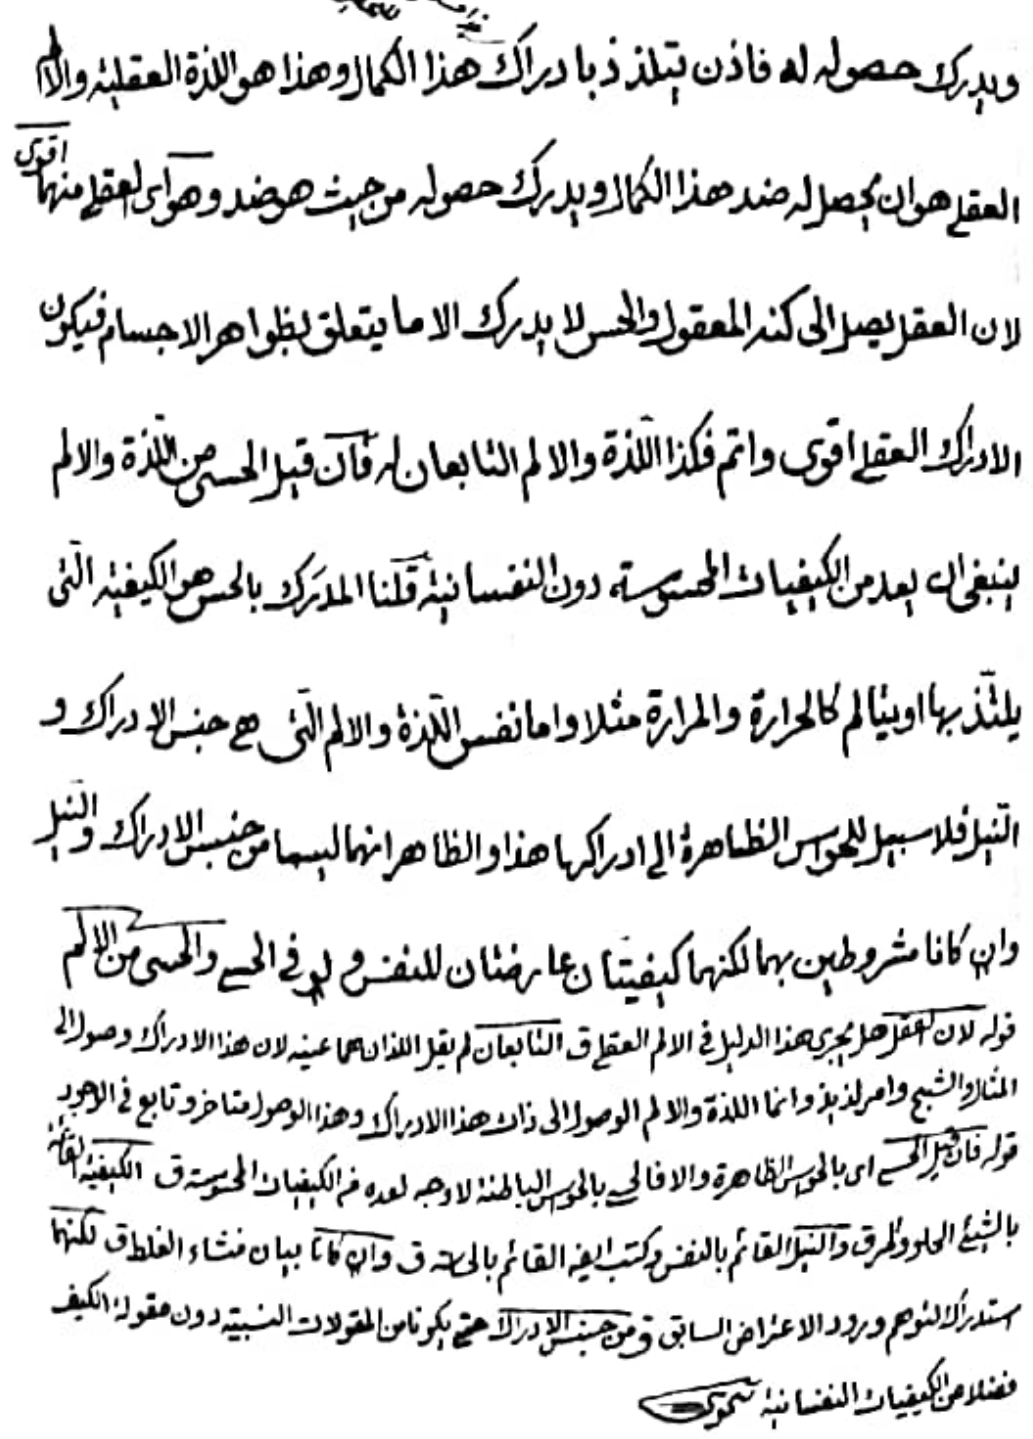 ويدرك حصوله له فاذن يتلذذ بادراك هذا الكمال وهذا هو اللذة العقلية والالم
العقلي هو ان يحصل له ضد هذا الكمال ويدرك حصوله من حيث هو ضد وهو اى العقلي منهما اقوى
لان العقل يصل الى كنه المعقول والحس لا يدرك الا ما يتعلق بظواهر الاجسام فيكون
الادراك العقلي اقوى واتم فكذا اللّذة والالم التابعان له فان قيل الحسى من اللّذة والالم
ينبغى ان يعد من الكيفيات المحسوسة دون النفسانية قلنا المدرَك بالحس هو الكيفية الّتى
يلتّذ بها او يتالم كالحرارة والمرارة مثلا واما نفس اللّذة والالم الّتى هى جنس الادراك و
النّيل فلا سبيل للحواس الظاهرة الى ادراكها هذا والظاهر انهما ليسا من جنس الادراك والنّيل
وان كانا مشروطين بهما لكنهما كيفيتان عارضتان للنفس و لو فى الحسى والحسى من الالم
قوله لان العقل هل يجرى هذا الدليل فى الالم العقلى ق التابعان لم يقل اللذان هما عينه لان هذا الادراك وصول الى
المثال والشبح وامر لذيذ وانما اللذة والالم الوصول الى ذات هذا الادراك وهذا الوصول متاخر وتابع فى الوجود
قوله فان قيل الحسى اى بالحواس الظاهرة والا فالحسى بالحواس الباطنة لا وجه لعده من الكيفيات المحسوسة ق الكيفية القائمة
بالشيئ الحلو والمر ق والنيل القائم بالنفس وكتب ايضا القائم بالحاسة ق وان كانا بيان منشاء الغلط ق لكنهما
استدراك لتوهم ورود الاعتراض السابق ق من جنس الادراك حتى يكونا من المقولات النسبية دون مقولة الكيف
فضلا من الكيفيات النفسانية